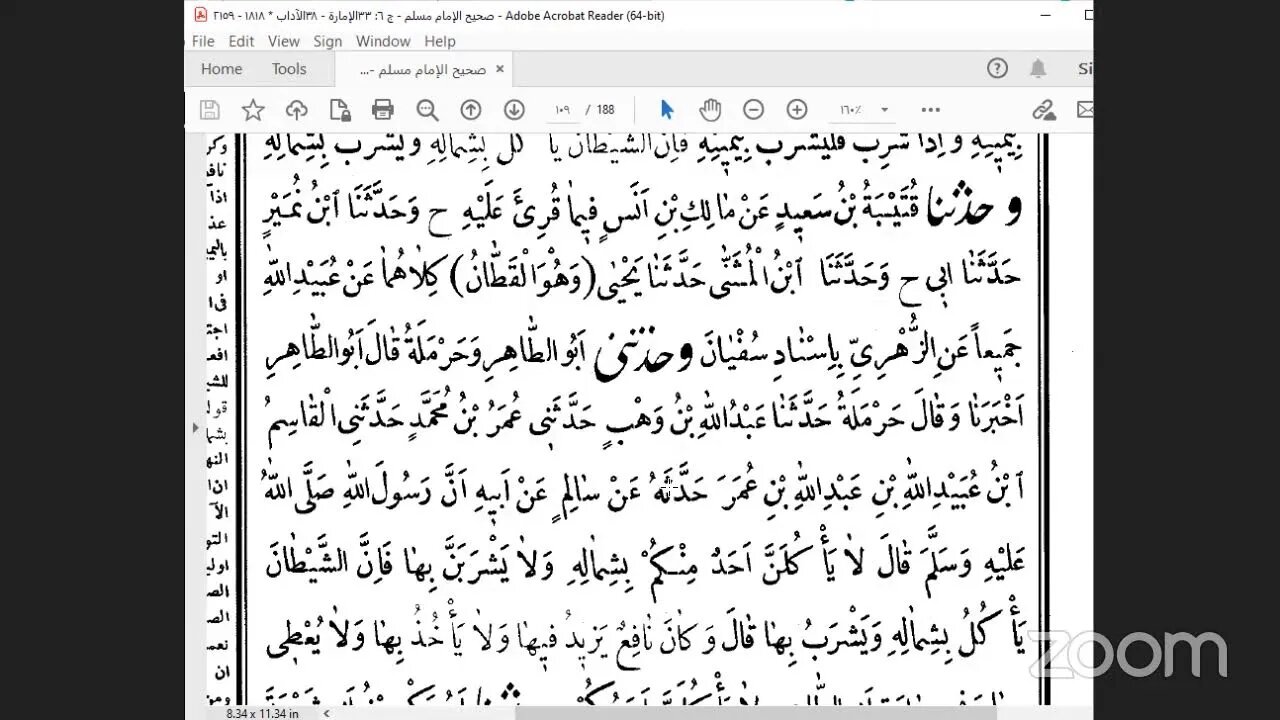 صحيح الإمام مسلم - ج ٦: ٣٣الإمارة - ٣٨الآداب * ١٨١٨ - ٢١٥٩ - Adobe Acrobat Reader (64-bit)
File Edit View Sign Window Help
Home Tools صحيح الإمام مسلم -... × Si
١٠٩ / 188 ١٦٠٪
بِيَمِينِهِ وَاِذَا شَرِبَ فَلْيَشْرَبْ بِيَمِينِهِ فَاِنَّ الشَّيْطَانَ يَأْكُلُ بِشِمَالِهِ وَيَشْرَبُ بِشِمَالِهِ
و حدثنا قُتَيْبَةُ بْنُ سَعِيدٍ عَنْ مَالِكِ بْنِ اَنَسٍ فِيمَا قُرِئَ عَلَيْهِ ح وَحَدَّثَنَا ابْنُ نُمَيْرٍ
حَدَّثَنَا اَبِي ح وَحَدَّثَنَا ابْنُ الْمُثَنَّى حَدَّثَنَا يَحْيٰى (وَهُوَ الْقَطَّانُ) كِلَاهُمَا عَنْ عُبَيْدِ اللهِ
جَمِيعاً عَنِ الزُّهْرِيِّ بِاِسْنَادِ سُفْيَانَ وحدثنى اَبُو الطَّاهِرِ وَحَرْمَلَةُ قَالَ اَبُو الطَّاهِرِ
اَخْبَرَنَا وَقَالَ حَرْمَلَةُ حَدَّثَنَا عَبْدُ اللهِ بْنُ وَهْبٍ حَدَّثَنِى عُمَرُ بْنُ مُحَمَّدٍ حَدَّثَنِى الْقَاسِمُ
ابْنُ عُبَيْدِ اللهِ بْنِ عَبْدِ اللهِ بْنِ عُمَرَ حَدَّثَهُ عَنْ سَالِمٍ عَنْ اَبِيهِ اَنَّ رَسُولَ اللهِ صَلَّى اللهُ
عَلَيْهِ وَسَلَّمَ قَالَ لَا يَأْكُلَنَّ اَحَدٌ مِنْكُمْ بِشِمَالِهِ وَلَا يَشْرَبَنَّ بِهَا فَاِنَّ الشَّيْطَانَ
يَأْكُلُ بِشِمَالِهِ وَيَشْرَبُ بِهَا قَالَ وَكَانَ نَافِعٌ يَزِيدُ فِيهَا وَلَا يَأْخُذُ بِهَا وَلَا يُعْطِى
zoom
8.34 x 11.34 in